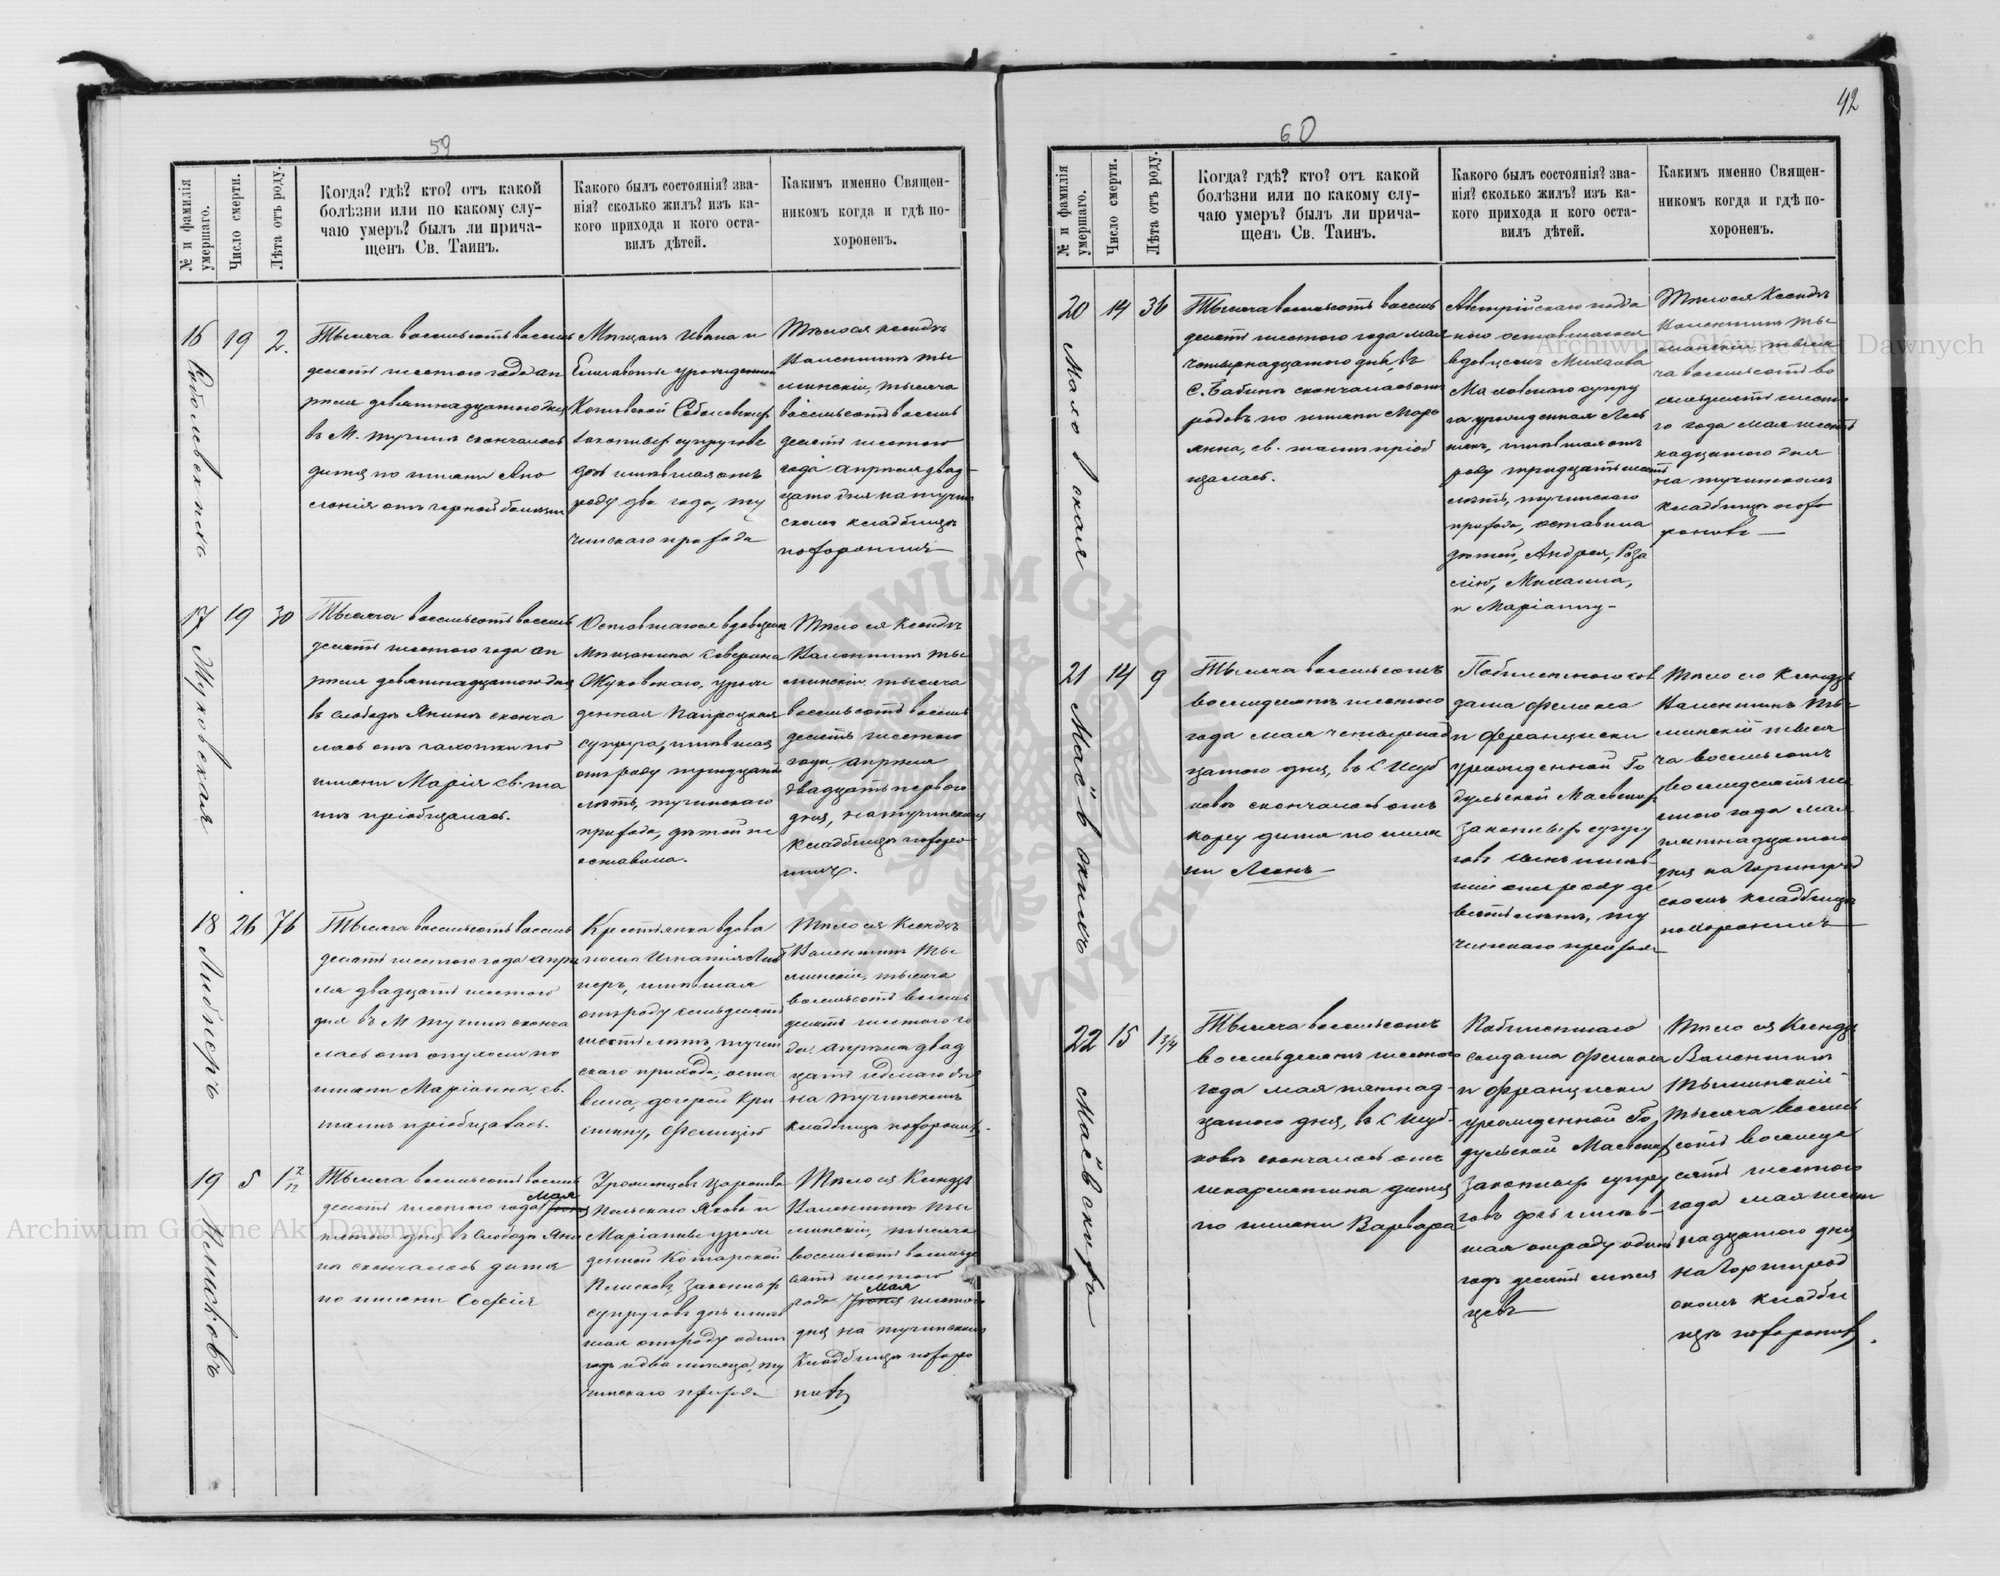 42
59
№ и фамилія умершаго.
Число смерти.
Лѣта отъ роду.
Когда? гдѣ? кто? отъ какой
болѣзни или по какому слу-
чаю умеръ? былъ ли прича-
щенъ Св. Таинъ.
Какого былъ состоянія? зва-
нія? сколько жилъ? изъ ка-
кого прихода и кого оста-
вилъ дѣтей.
Какимъ именно Священ-
никомъ когда и гдѣ по-
хороненъ.
16
19
2.
Тысяча восемьсотъ восемь
десятъ шестого года ап
рѣля девятнадцатого дня
въ М. Тучинѣ скончалось
дитя по имени Апо
лонія отъ черной болѣзни
Мѣщанъ Ивана и
Елисаветы урожденной
законныхъ супруговъ
дочь имѣвшая отъ
роду два года, ту
чинскаго прихода
Тѣло ея ксендзъ
Валентинъ Ты
минскій, тысяча
восемьсотъ восемь
десятъ шестого
года апрѣля двад
цатого дня на тучин
скомъ кладбищѣ
похоронилъ
17
Жуковская
19
30
Тысяча восемьсотъ восемь
десятъ шестого года ап
рѣля девятнадцатого дня
въ слободѣ Янинѣ сконча
лась отъ чахотки по
имени Марія св. та
инъ пріобщалась.
Оставшагося вдовцемъ
мѣщанина Северина
Жуковскаго, урож
денная Папроцкая
супруга, имѣвшая
отъ роду тридцать
лѣтъ, тучинскаго
прихода, дѣтей не
оставила.
Тѣло ея Ксендзъ
Валентинъ Ты
минскій тысяча
восемьсотъ восемь
десятъ шестого
года апрѣля
двадцать первого
дня, на тучинскомъ
кладбищѣ похоро
нилъ.
18
Либнеръ
26
76
Тысяча восемьсотъ восемь
десятъ шестого года апрѣ
ля двадцать шестого
дня въ М Тучинѣ сконча
лась отъ опухоли по
имени Маріанна, св.
таинъ пріобщалась.
Крестьянка вдова
послѣ Игнатія Либ
неръ, имѣвшая
отъ роду семьдесятъ
шесть лѣтъ, тучин
скаго прихода, оста
вила, дочерей Кри
стину, Фелицію
Тѣло ея Ксендзъ
Валентинъ Ты
минскій, тысяча
восемьсотъ восемь
десятъ шестого го
да апрѣля двад
цать седмаго дня
на тучинскомъ
кладбищѣ похоронилъ.
19
5
1 2/12
Тысяча восемьсотъ восемь
мая
десятъ шестого года
пятого дня въ Слободѣ Яни
нѣ скончалось дитя
по имени Софія
Уроженцевъ Царства
Польскаго Якова и
Маріанны урож
денной Комарской
законныхъ
супруговъ дочь имѣв
шая отъ роду одинъ
годъ и два мѣсяца, ту
чинскаго прихода
Тѣло ея Ксендзъ
Валентинъ Ты
минскій, тысяча
восемьсотъ восемьде
сятъ шестого
мая
года шестого
дня на тучинскомъ
кладбищѣ похоро
нилъ
60
№ и фамилія умершаго.
Число смерти.
Лѣта отъ роду.
Когда? гдѣ? кто? отъ какой
болѣзни или по какому слу-
чаю умеръ? былъ ли прича-
щенъ Св. Таинъ.
Какого былъ состоянія? зва-
нія? сколько жилъ? изъ ка-
кого прихода и кого оста-
вилъ дѣтей.
Какимъ именно Священ-
никомъ когда и гдѣ по-
хороненъ.
20
14
36
Тысяча восемьсотъ восемь
десятъ шестого года мая
четырнадцатого дня, въ
С. Бабинѣ скончалась отъ
родовъ по имени Марі
янна, св. таинъ пріоб
щалась.
Австрійскаго подда
ного оставшагося
вдовцемъ Михаила
супру
га урожденная
имѣвшая отъ
роду тридцать шесть
лѣтъ, тучинскаго
прихода, оставила
дѣтей, Андрея, Роза
лію, Михаила,
и Маріанну -
Тѣло ея Ксендзъ
Валентинъ Ты
минскій тысяча
восемьсотъ во
семьдесятъ шесто
го года мая шест
надцатого дня
на тучинскомъ
кладбищѣ похо
ронилъ —
21
Маёвскихъ
14
9
Тысяча восемьсотъ
восемьдесятъ шестого
года мая четырнад
цатого дня, въ С Шуб
ковѣ скончалось отъ
кору дитя по име
ни Леонъ —
солдата Феликса
и Францишки
урожденной Го
дульской Маевскихъ
законныхъ супру
говъ сынъ имѣв-
шій отъ роду де
вять лѣтъ, ту
чинскаго прихода
Тѣло его Ксендзъ
Валентинъ Ты-
минскій тысяча
восемьсотъ
восемьдесятъ ше
стого года мая
пятнадцатого
дня на Горингрод
скомъ кладбищѣ
похоронилъ
22
Маёвскихъ
15
1 3/4
Тысяча восемьсотъ
восемьдесятъ шестого
года мая пятнад-
цатого дня, въ С Шуб-
ковѣ скончалось отъ
шкарлятина дитя
по имени Варвара
солдата Феликса
и Францишки
урожденной Го
дульской Маевскихъ
законныхъ супру
говъ дочь имѣв-
шая отъ роду одинъ
годъ десять мѣся
цевъ —
Тѣло ея Ксендзъ
Валентинъ
Тыминскій
тысяча восемь
сотъ восемьде
сятъ шестого
года мая шест
надцатого дня
на Горингрод
скомъ кладби
щѣ похоронилъ.
Archiwum Główne Akt Dawnych
Archiwum Główne Akt Dawnych